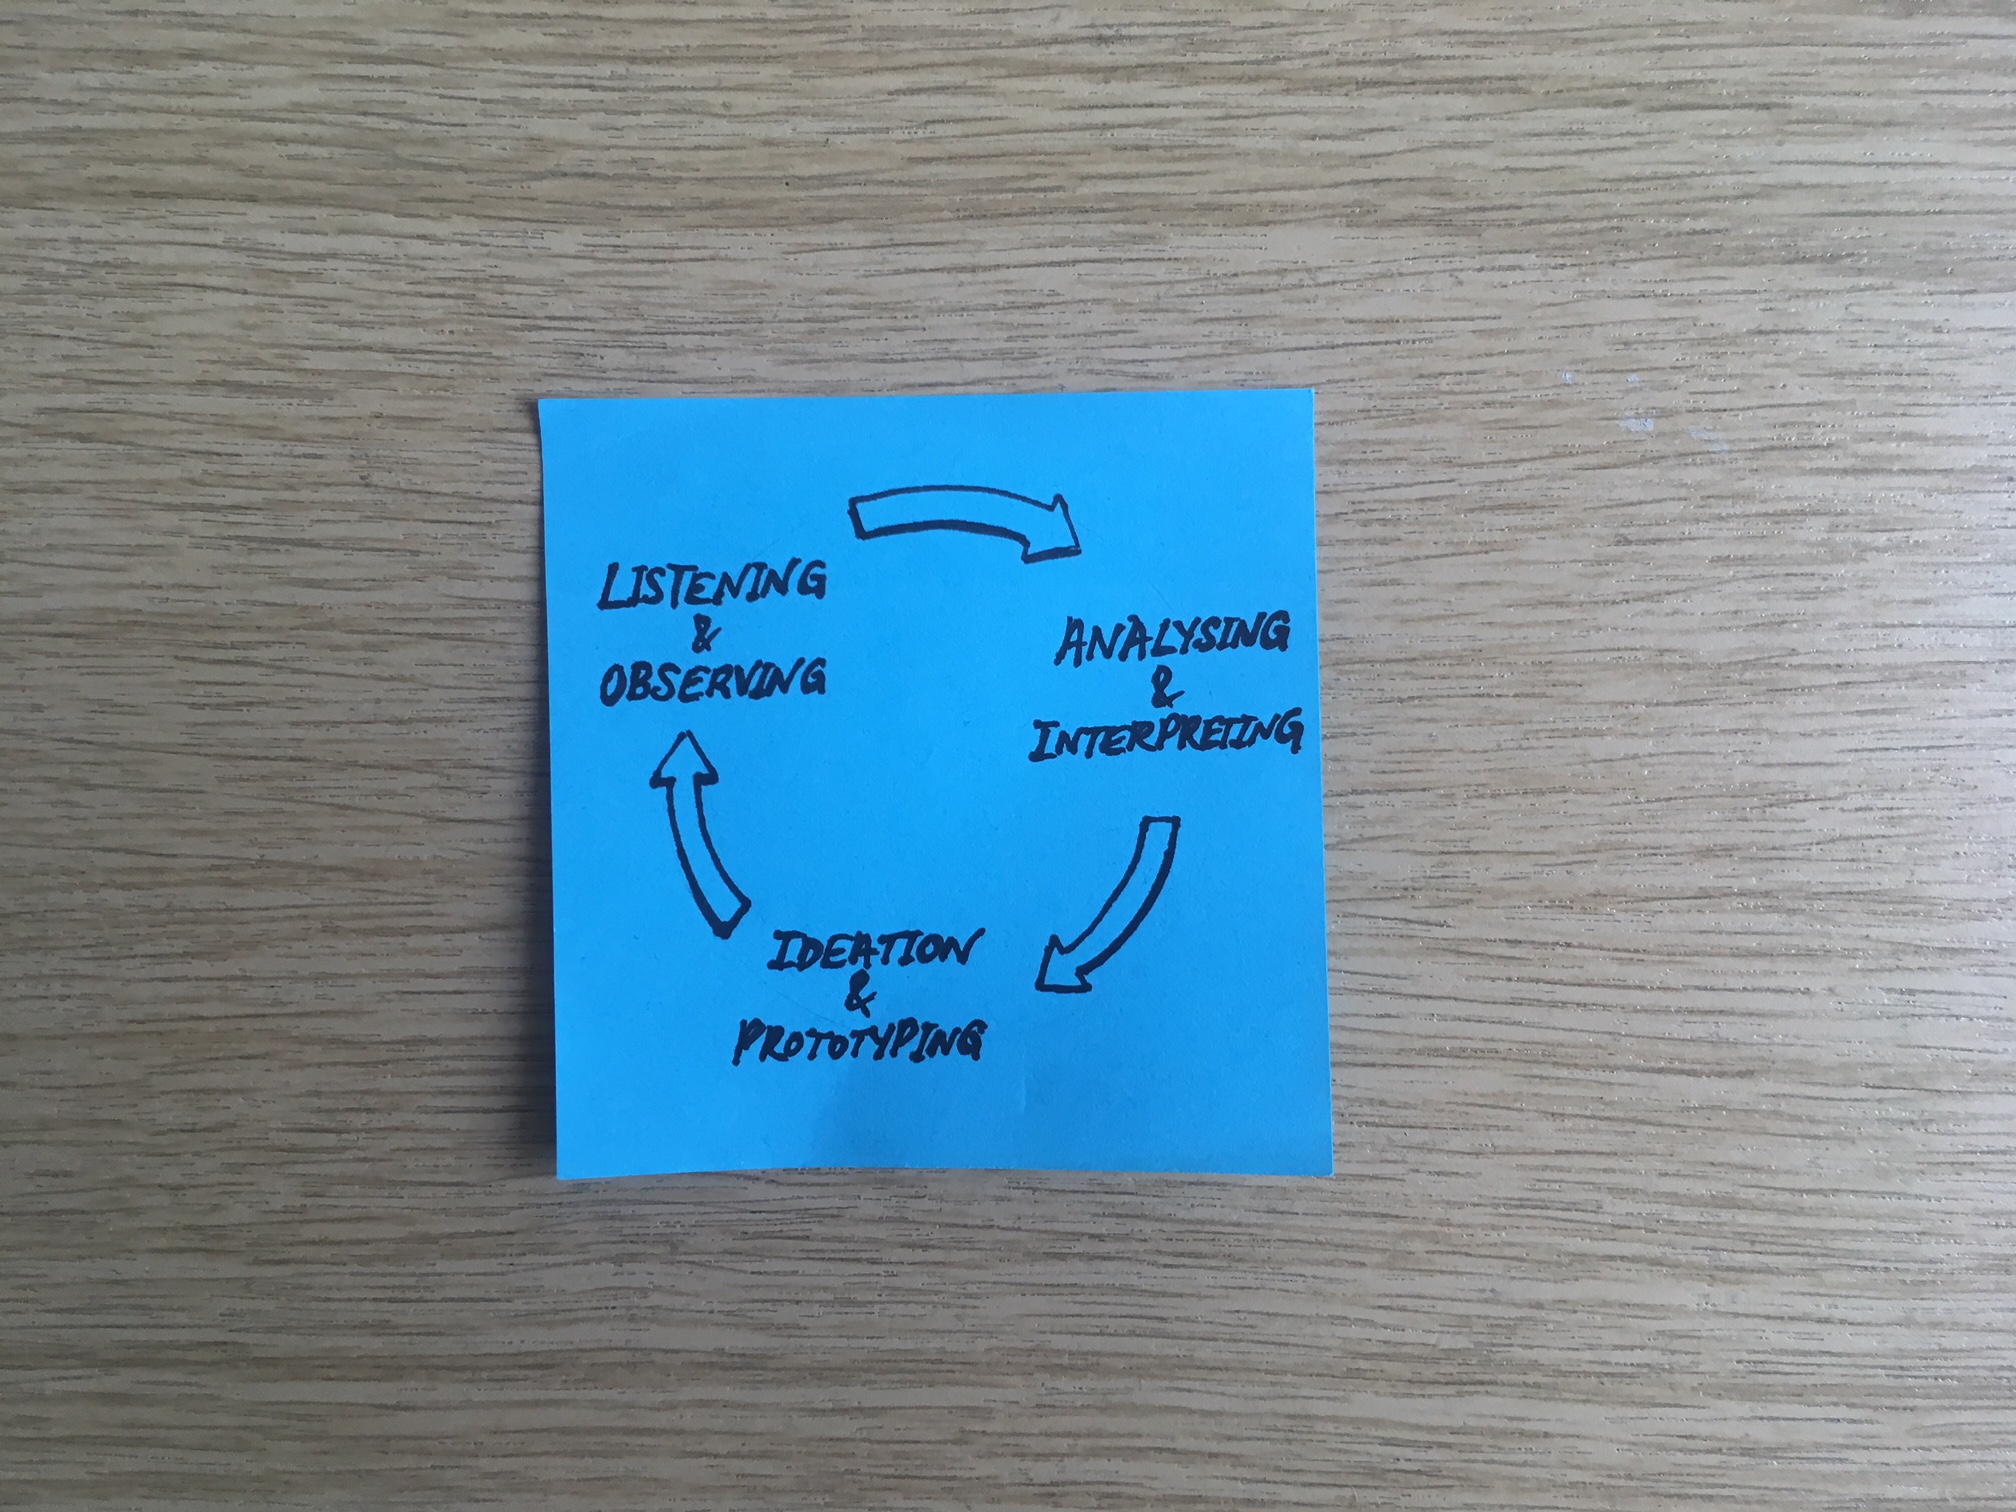 LISTENING
&
OBSERVING
ANALYSING
&
INTERPRETING
IDEATION
&
PROTOTYPING